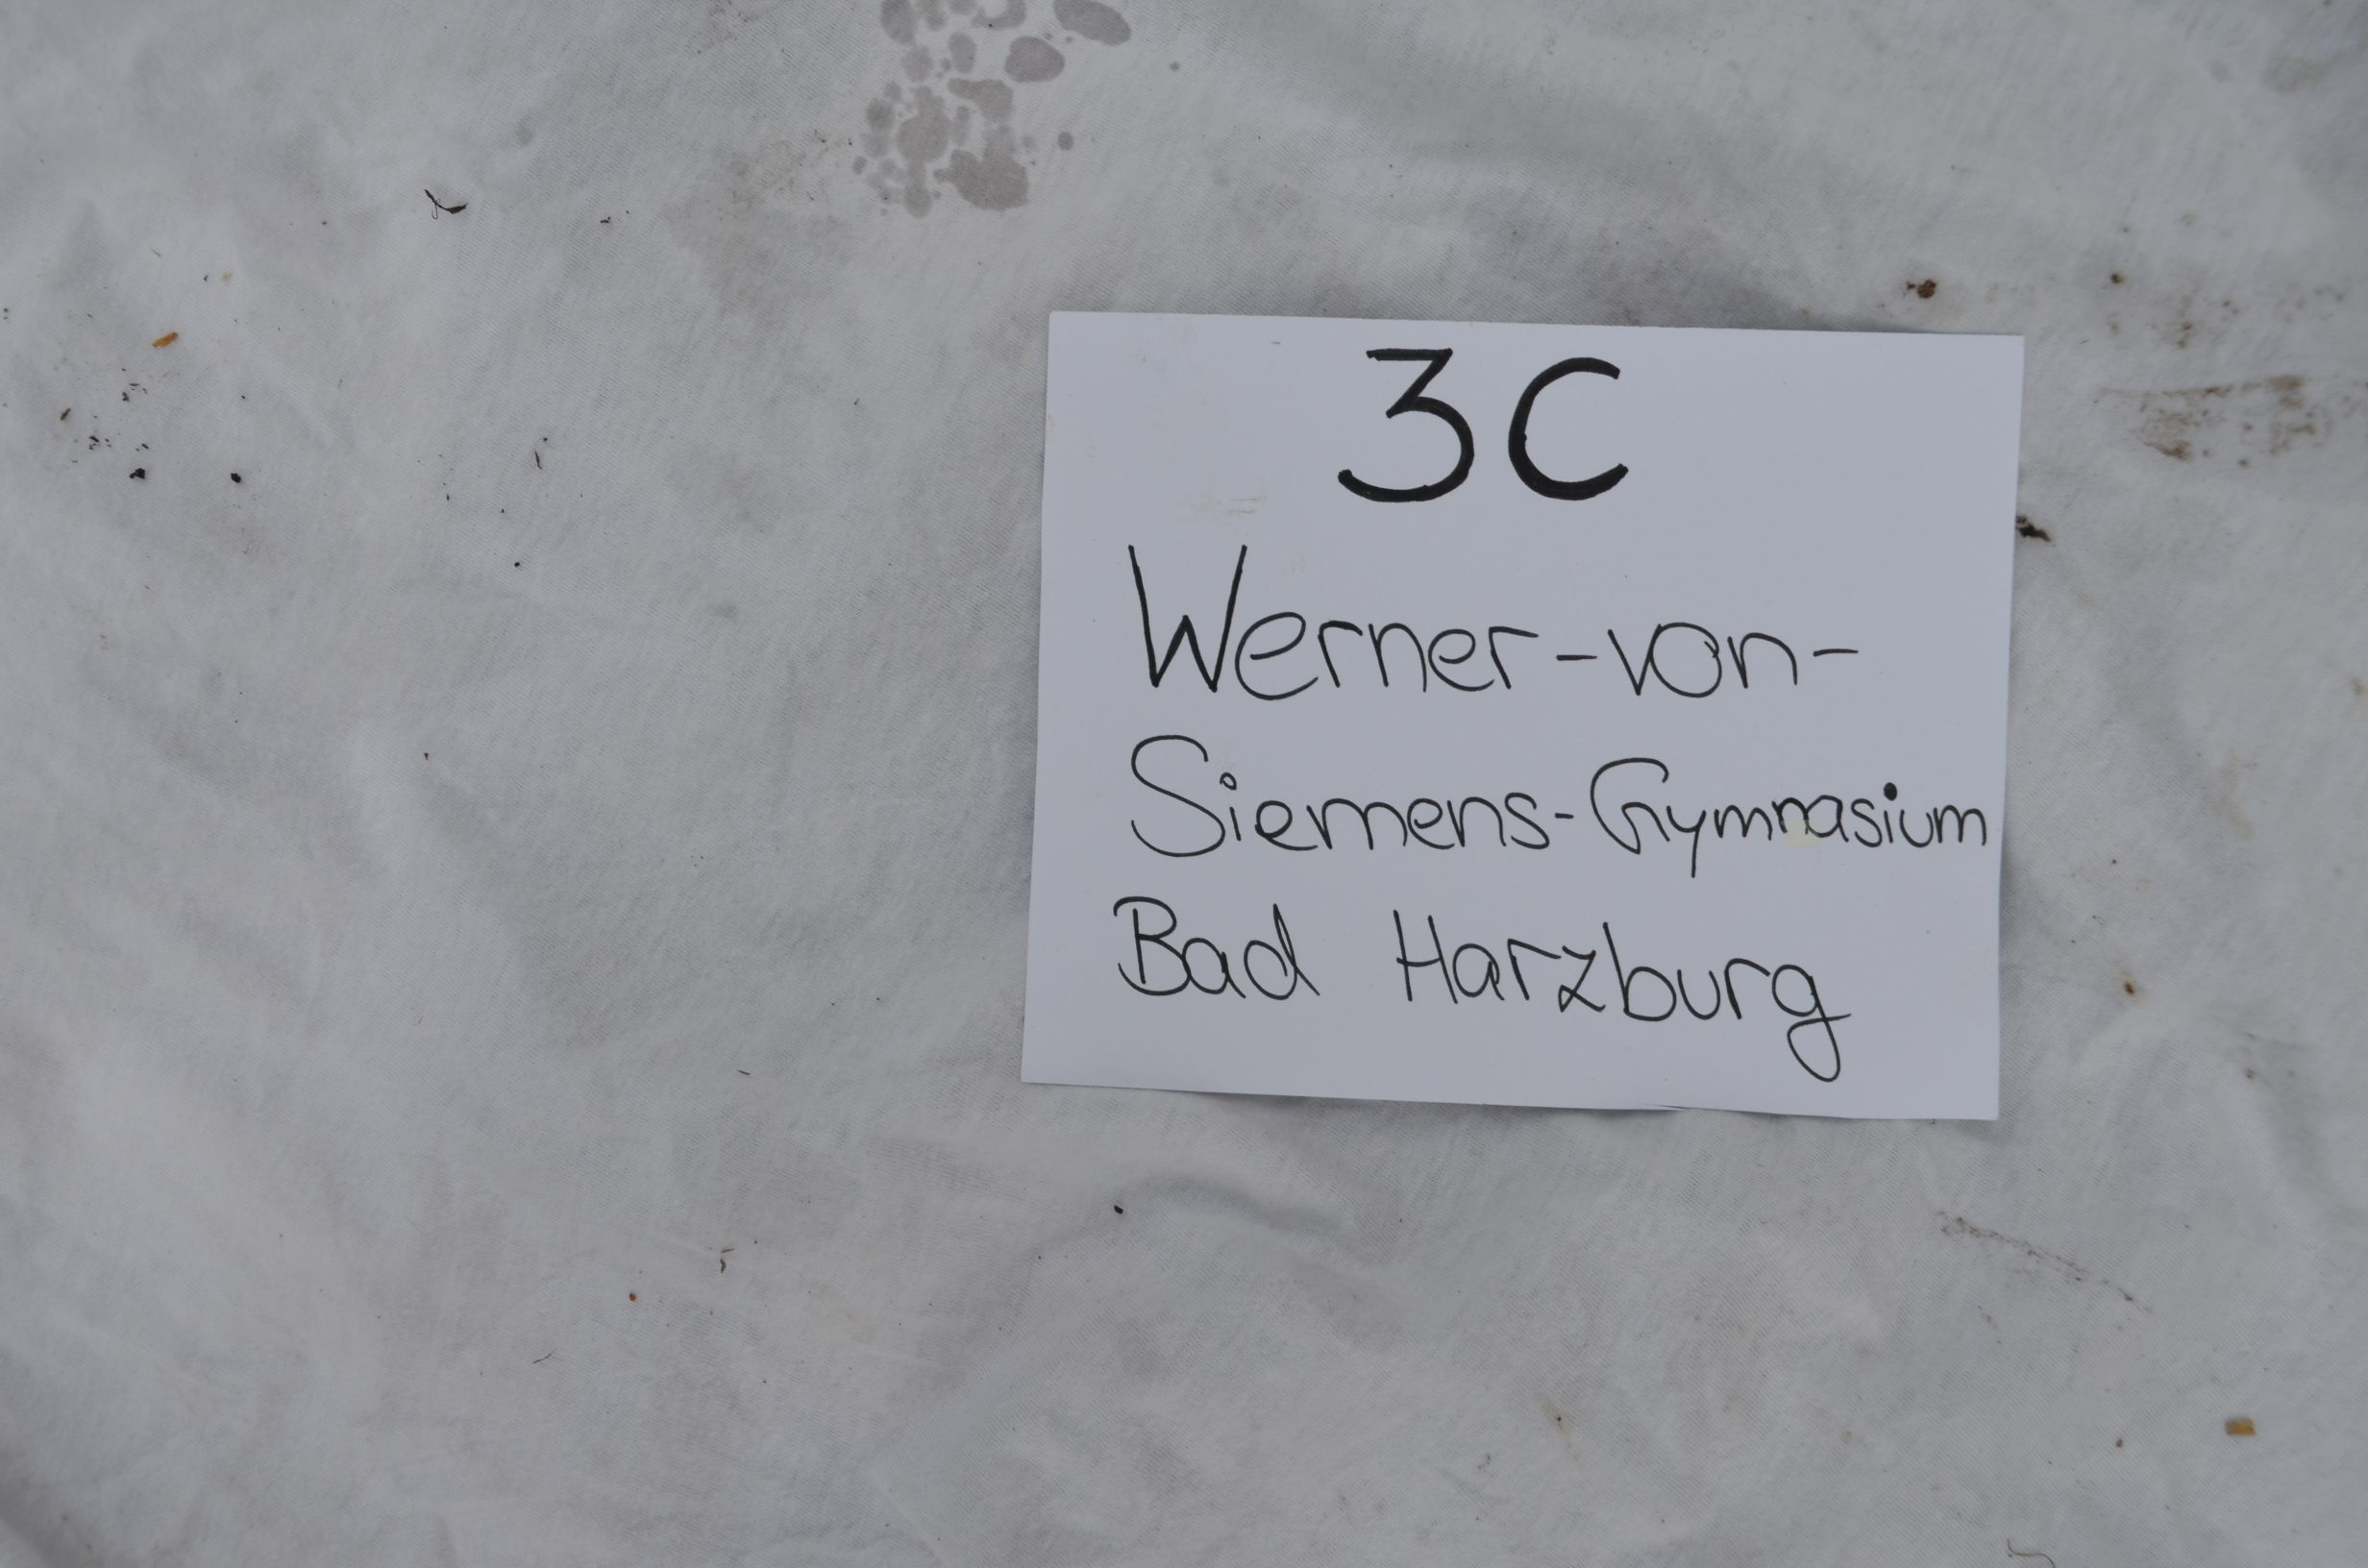 3C
Werner-von-
Siemens-Gymnasium
Bad Harzburg